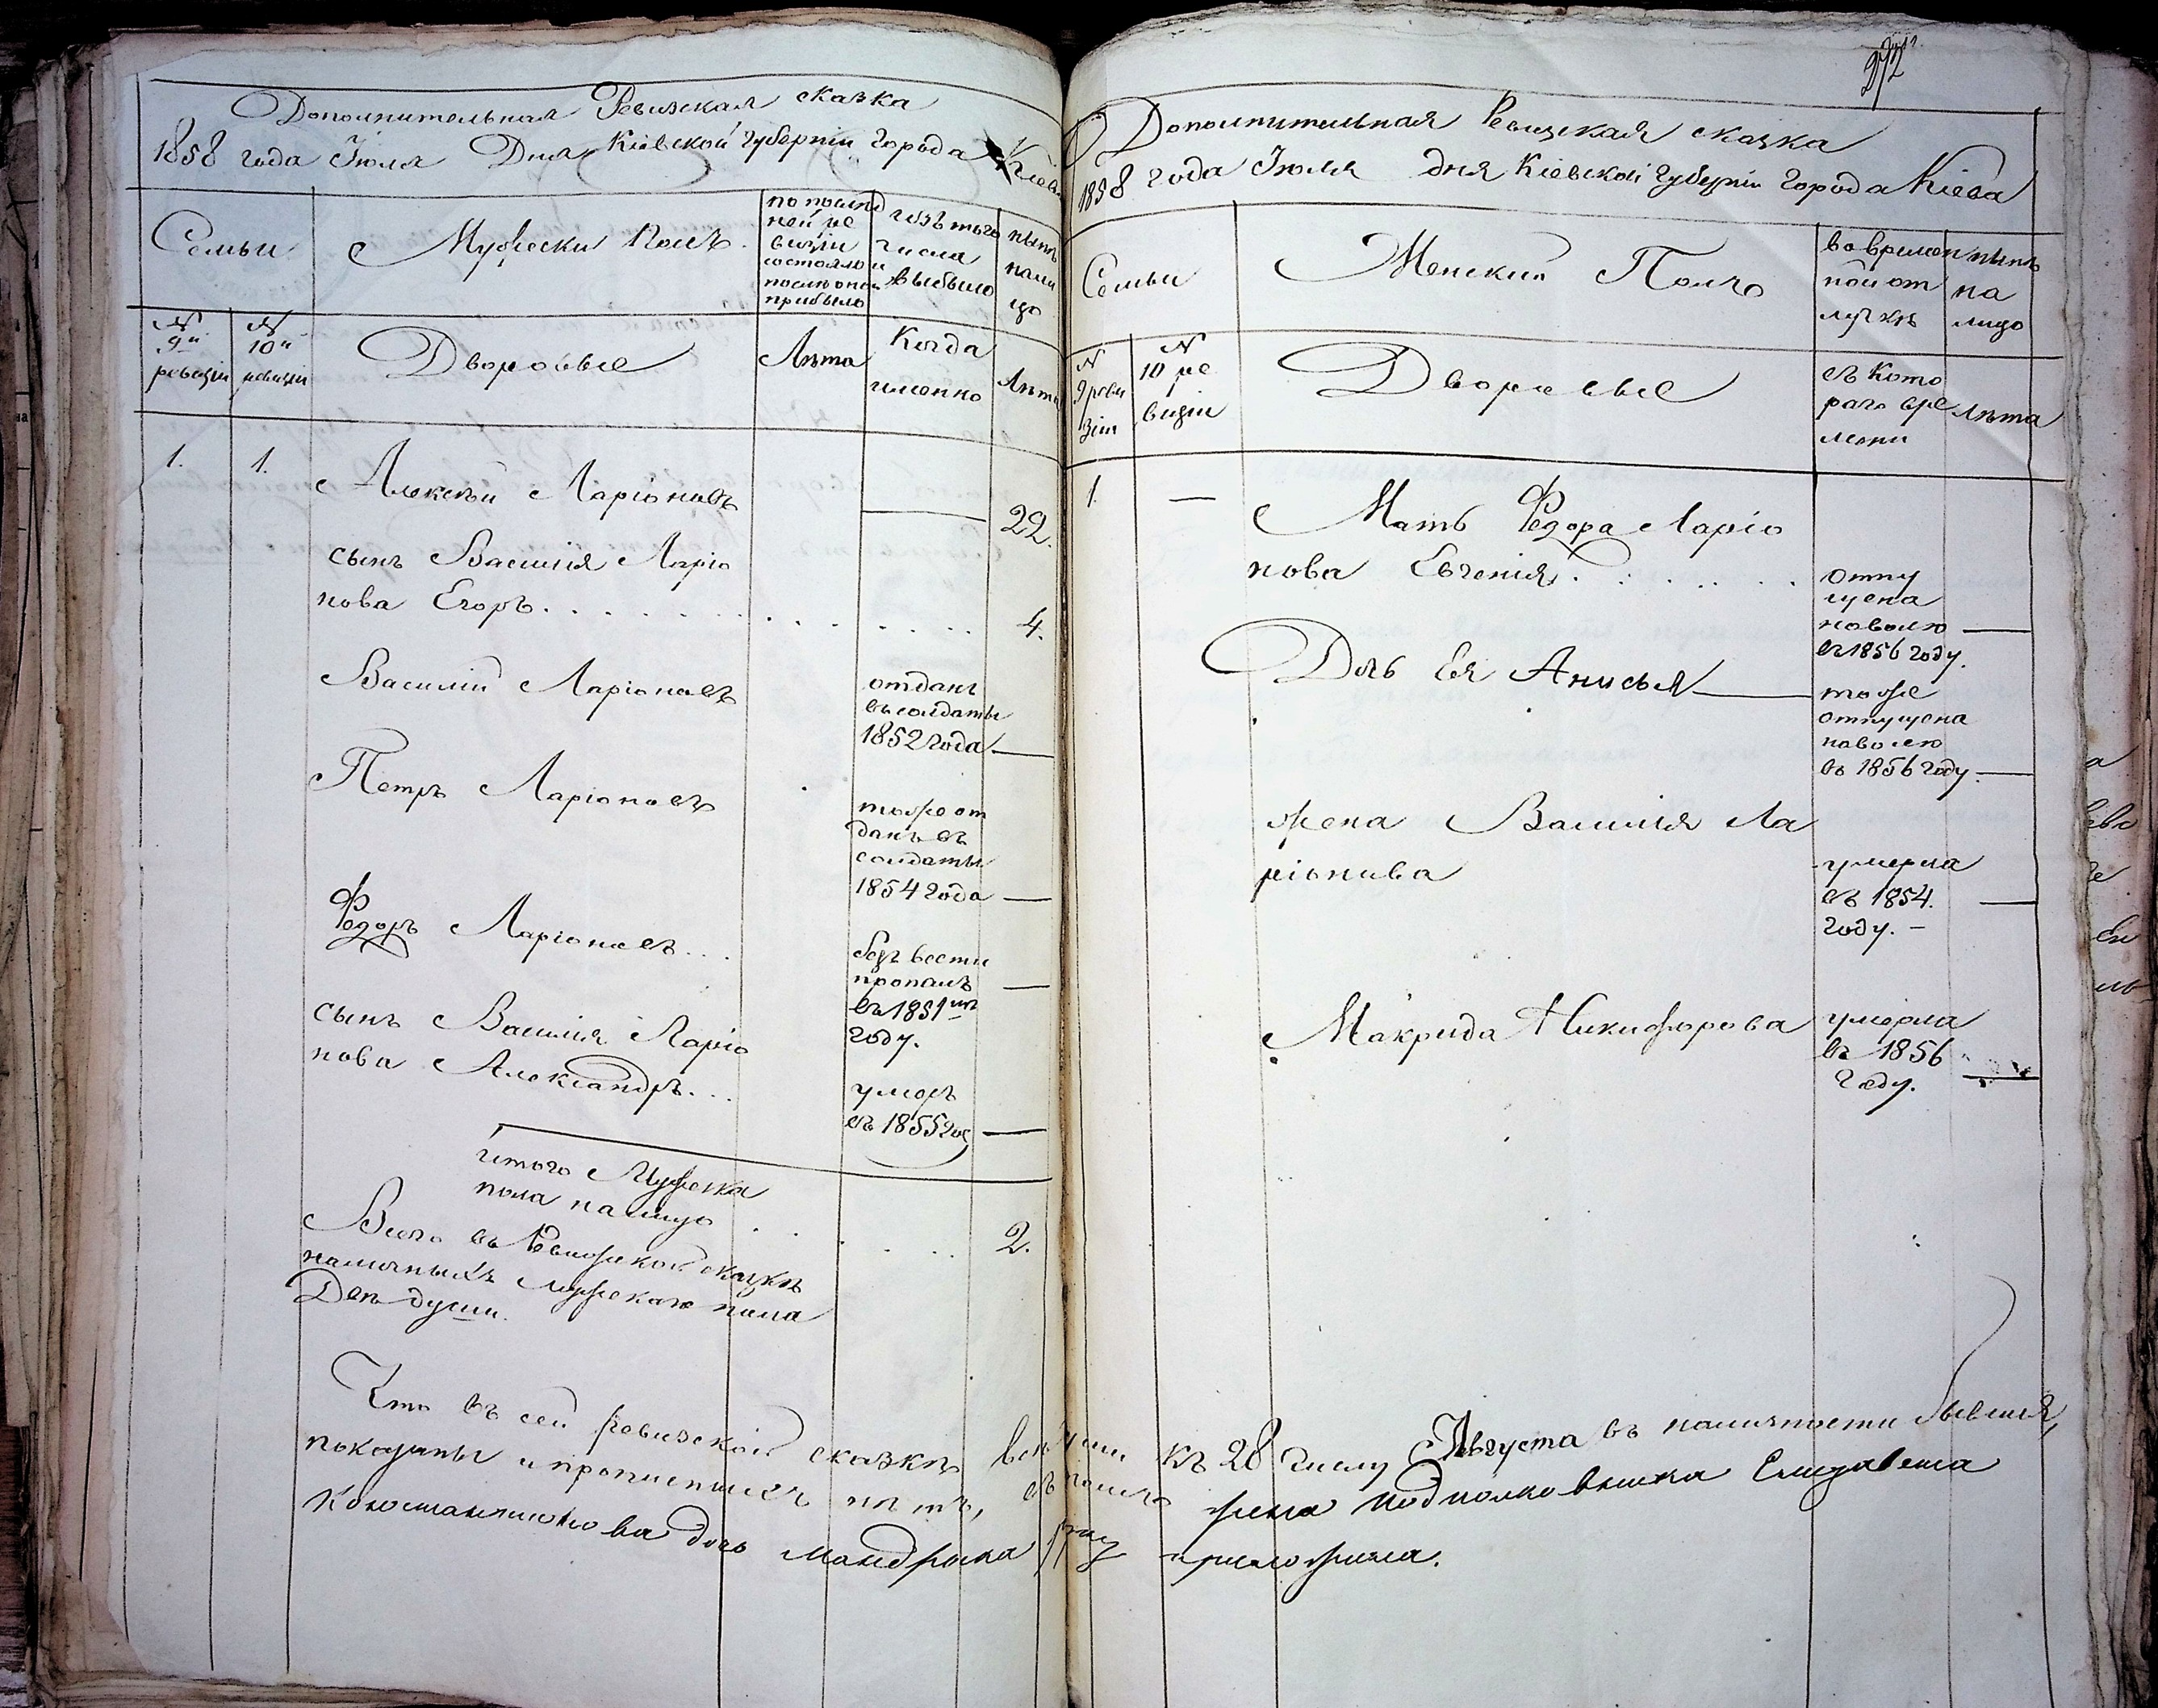 Дополнительная Ревизская сказка
1858 года Іюля Дня Кіевской Губерніи города Кіева
Семьи
Мужески Полъ
по послѣд
ней ре
визіи
состояло и
после оной
прибыло
изъ того
числа
выбыло
нынѣ
нали
цо
№
9й
ревизіи
№
10й
ревизіи
Дворовые
Лѣта
Когда
именно
Лѣта
1.
1.
Алексѣй Ларіоновъ
22.
сынъ Василія Ларіо
нова Егоръ
4.
Василій Ларіоновъ
отданъ
въ солдаты
1852 года
Петръ Ларіоновъ
тоже от
данъ въ
солдаты
1854 года
Федоръ Ларіоновъ
безъ вести
пропалъ
въ 1851мъ
году.
сынъ Василія Ларіо
нова Александръ
умеръ
въ 1855 го
итого Мужеска
пола налицо
2.
Всего въ Ревизской сказкѣ
наличныхъ мужскаго пола
Двѣ души.
272
Дополнительная Ревизская сказка
1858 года Іюля дня Кіевской Губерніи Города Кіева
Семьи
Женский Полъ
во времен
ной от
лучкѣ
нынѣ
на
лицо
№
9 реви
зіи
№
10 ре
визіи
Дворовые
съ кото
раго вре
мени
Лѣта
1.
Мать Федора Ларіо
нова Евгенія
отпу
щена
наволю
въ 1856 году.
Дочь Ея Анисья
тоже
отпущена
наволю
въ 1856 году.
жена Василія Ла
ріонова
умерла
въ 1854.
году.
Макрида Никифорова
умерла
въ 1856
году.
Что въ сей ревизской сказкѣ все души къ 28 числу Августа въ наличности бывшія,
показаны и прописныхъ нѣтъ, въ томъ жена подполковника Елизавета
Константинова дочь Мандрыка руку приложила.